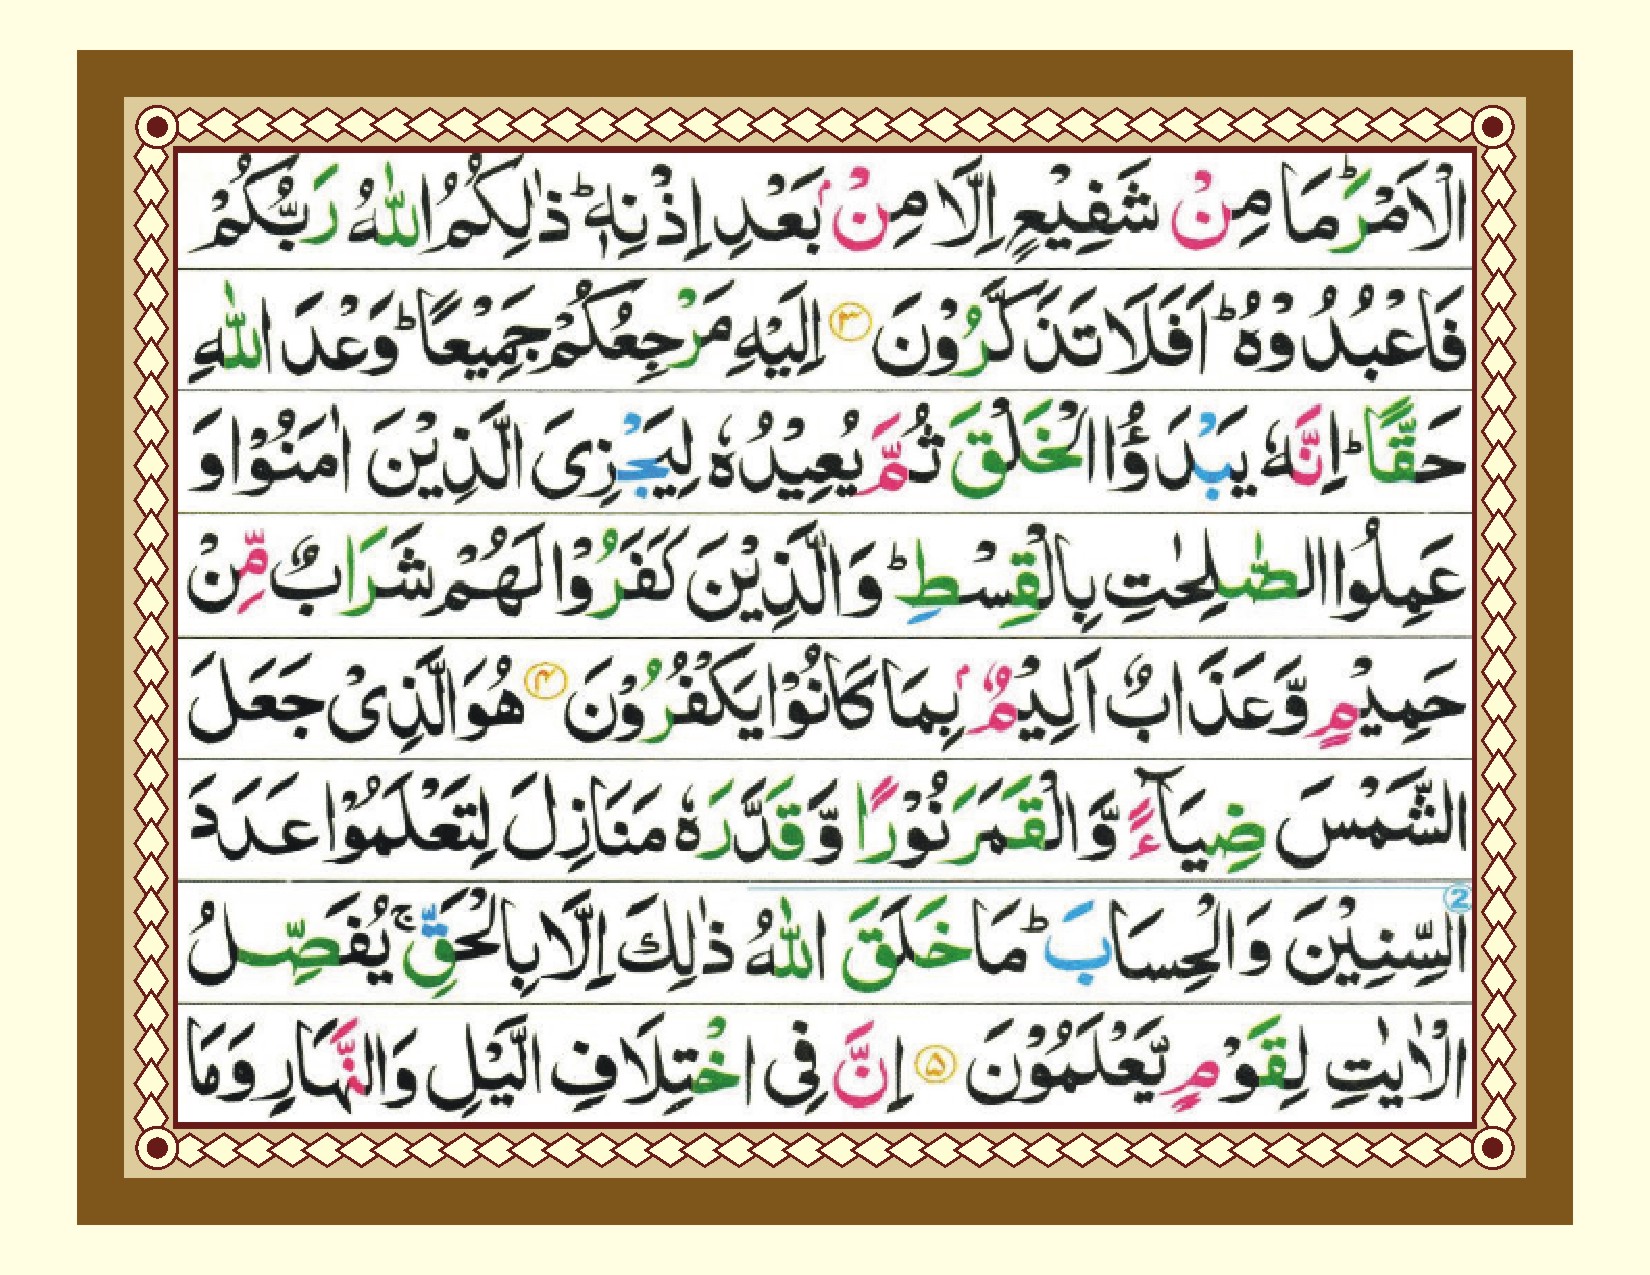 الْاَمْرَ ؕ مَا مِنْ شَفِیْعٍ اِلَّا مِنْۢ بَعْدِ اِذْنِهٖ ؕ ذٰلِكُمُ اللّٰهُ رَبُّكُمْ
فَاعْبُدُوْهُ ؕ اَفَلَا تَذَكَّرُوْنَ ۳ اِلَیْهِ مَرْجِعُكُمْ جَمِیْعًا ؕ وَعْدَ اللّٰهِ
حَقًّا ؕ اِنَّهٗ یَبْدَؤُا الْخَلْقَ ثُمَّ یُعِیْدُهٗ لِیَجْزِیَ الَّذِیْنَ اٰمَنُوْا وَ
عَمِلُوا الصّٰلِحٰتِ بِالْقِسْطِ ؕ وَالَّذِیْنَ كَفَرُوْا لَهُمْ شَرَابٌ مِّنْ
حَمِیْمٍ وَّعَذَابٌ اَلِیْمٌۢ بِمَا كَانُوْا یَكْفُرُوْنَ ۴ هُوَ الَّذِیْ جَعَلَ
الشَّمْسَ ضِیَآءً وَّالْقَمَرَ نُوْرًا وَّقَدَّرَهٗ مَنَازِلَ لِتَعْلَمُوْا عَدَدَ
2
السِّنِیْنَ وَالْحِسَابَ ؕ مَا خَلَقَ اللّٰهُ ذٰلِكَ اِلَّا بِالْحَقِّ ۚ یُفَصِّلُ
الْاٰیٰتِ لِقَوْمٍ یَّعْلَمُوْنَ ۵ اِنَّ فِی اخْتِلَافِ الَّیْلِ وَالنَّهَارِ وَمَا